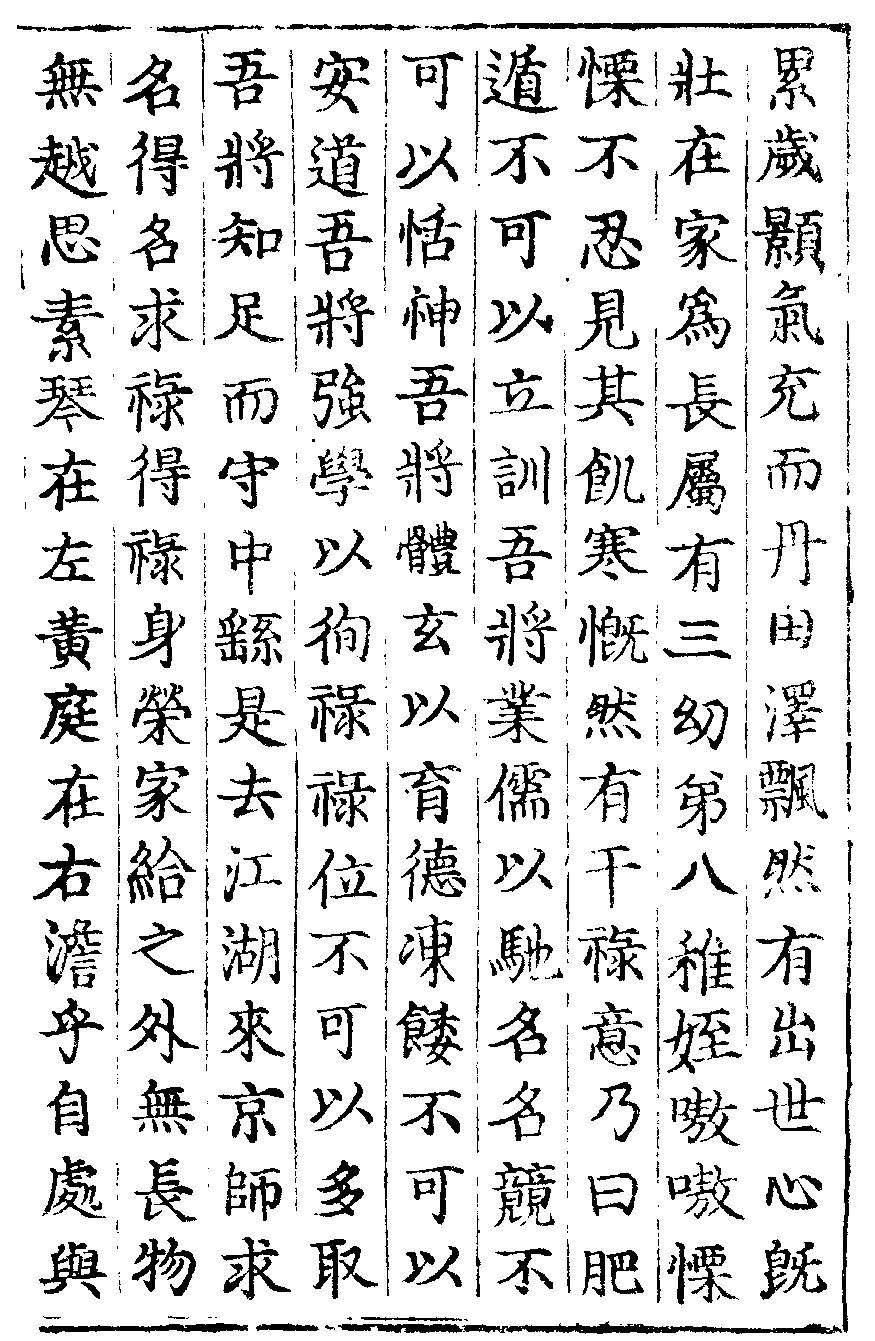 累歲顥氣充而丹田澤飄然有出世心既
壯在家爲長屬有三幼弟八稚姪嗷嗷慄
慄不忍見其飢寒慨然有干祿意乃曰肥
遁不可以立訓吾將業儒以馳名名競不
可以恬神吾將體玄以育德凍餧不可以
安道吾將強學以徇祿祿位不可以多取
吾將知足而守中繇是去江湖來京師求
名得名求祿得祿身榮家給之外無長物
無越思素琴在左黃庭在右澹乎自處與